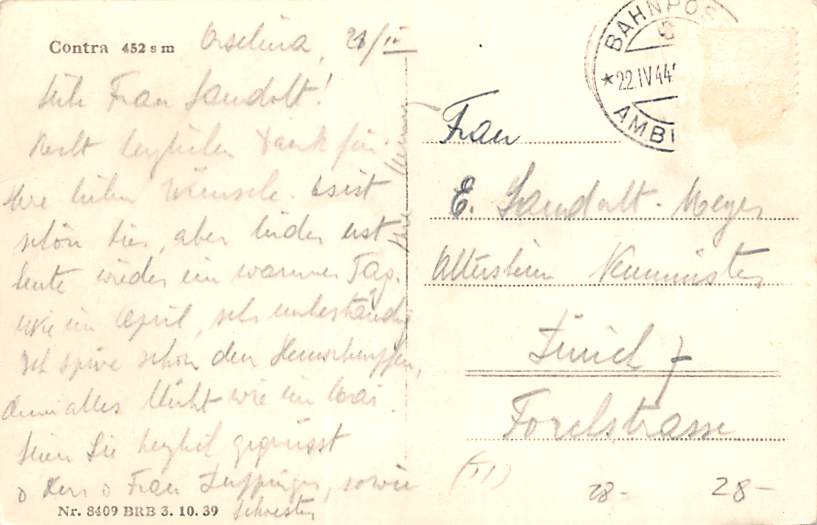 Contra 452 s m
Orselina, 21/IV
Liebe Frau Landolt!
Recht herzlichen Dank für
Ihre lieben Wünsche. Es ist
schön hier, aber leider erst
heute wieder ein warmer Tag.
Wie im April, sehr unbeständig
Ich spüre schon den Heuschnupfen,
denn alles blüht wie im Mai.
Seien Sie herzlich gegrüsst
Herr Frau sowie
Schwester
Ihre
Nr. 8409 BRB 3. 10. 39
BAHNPOS
*22.IV.44
AMBU
Frau
E. Landolt-Meyer
Altersheim Neumünster
Zürich 7
Forchstrasse
(II)
28-
28-